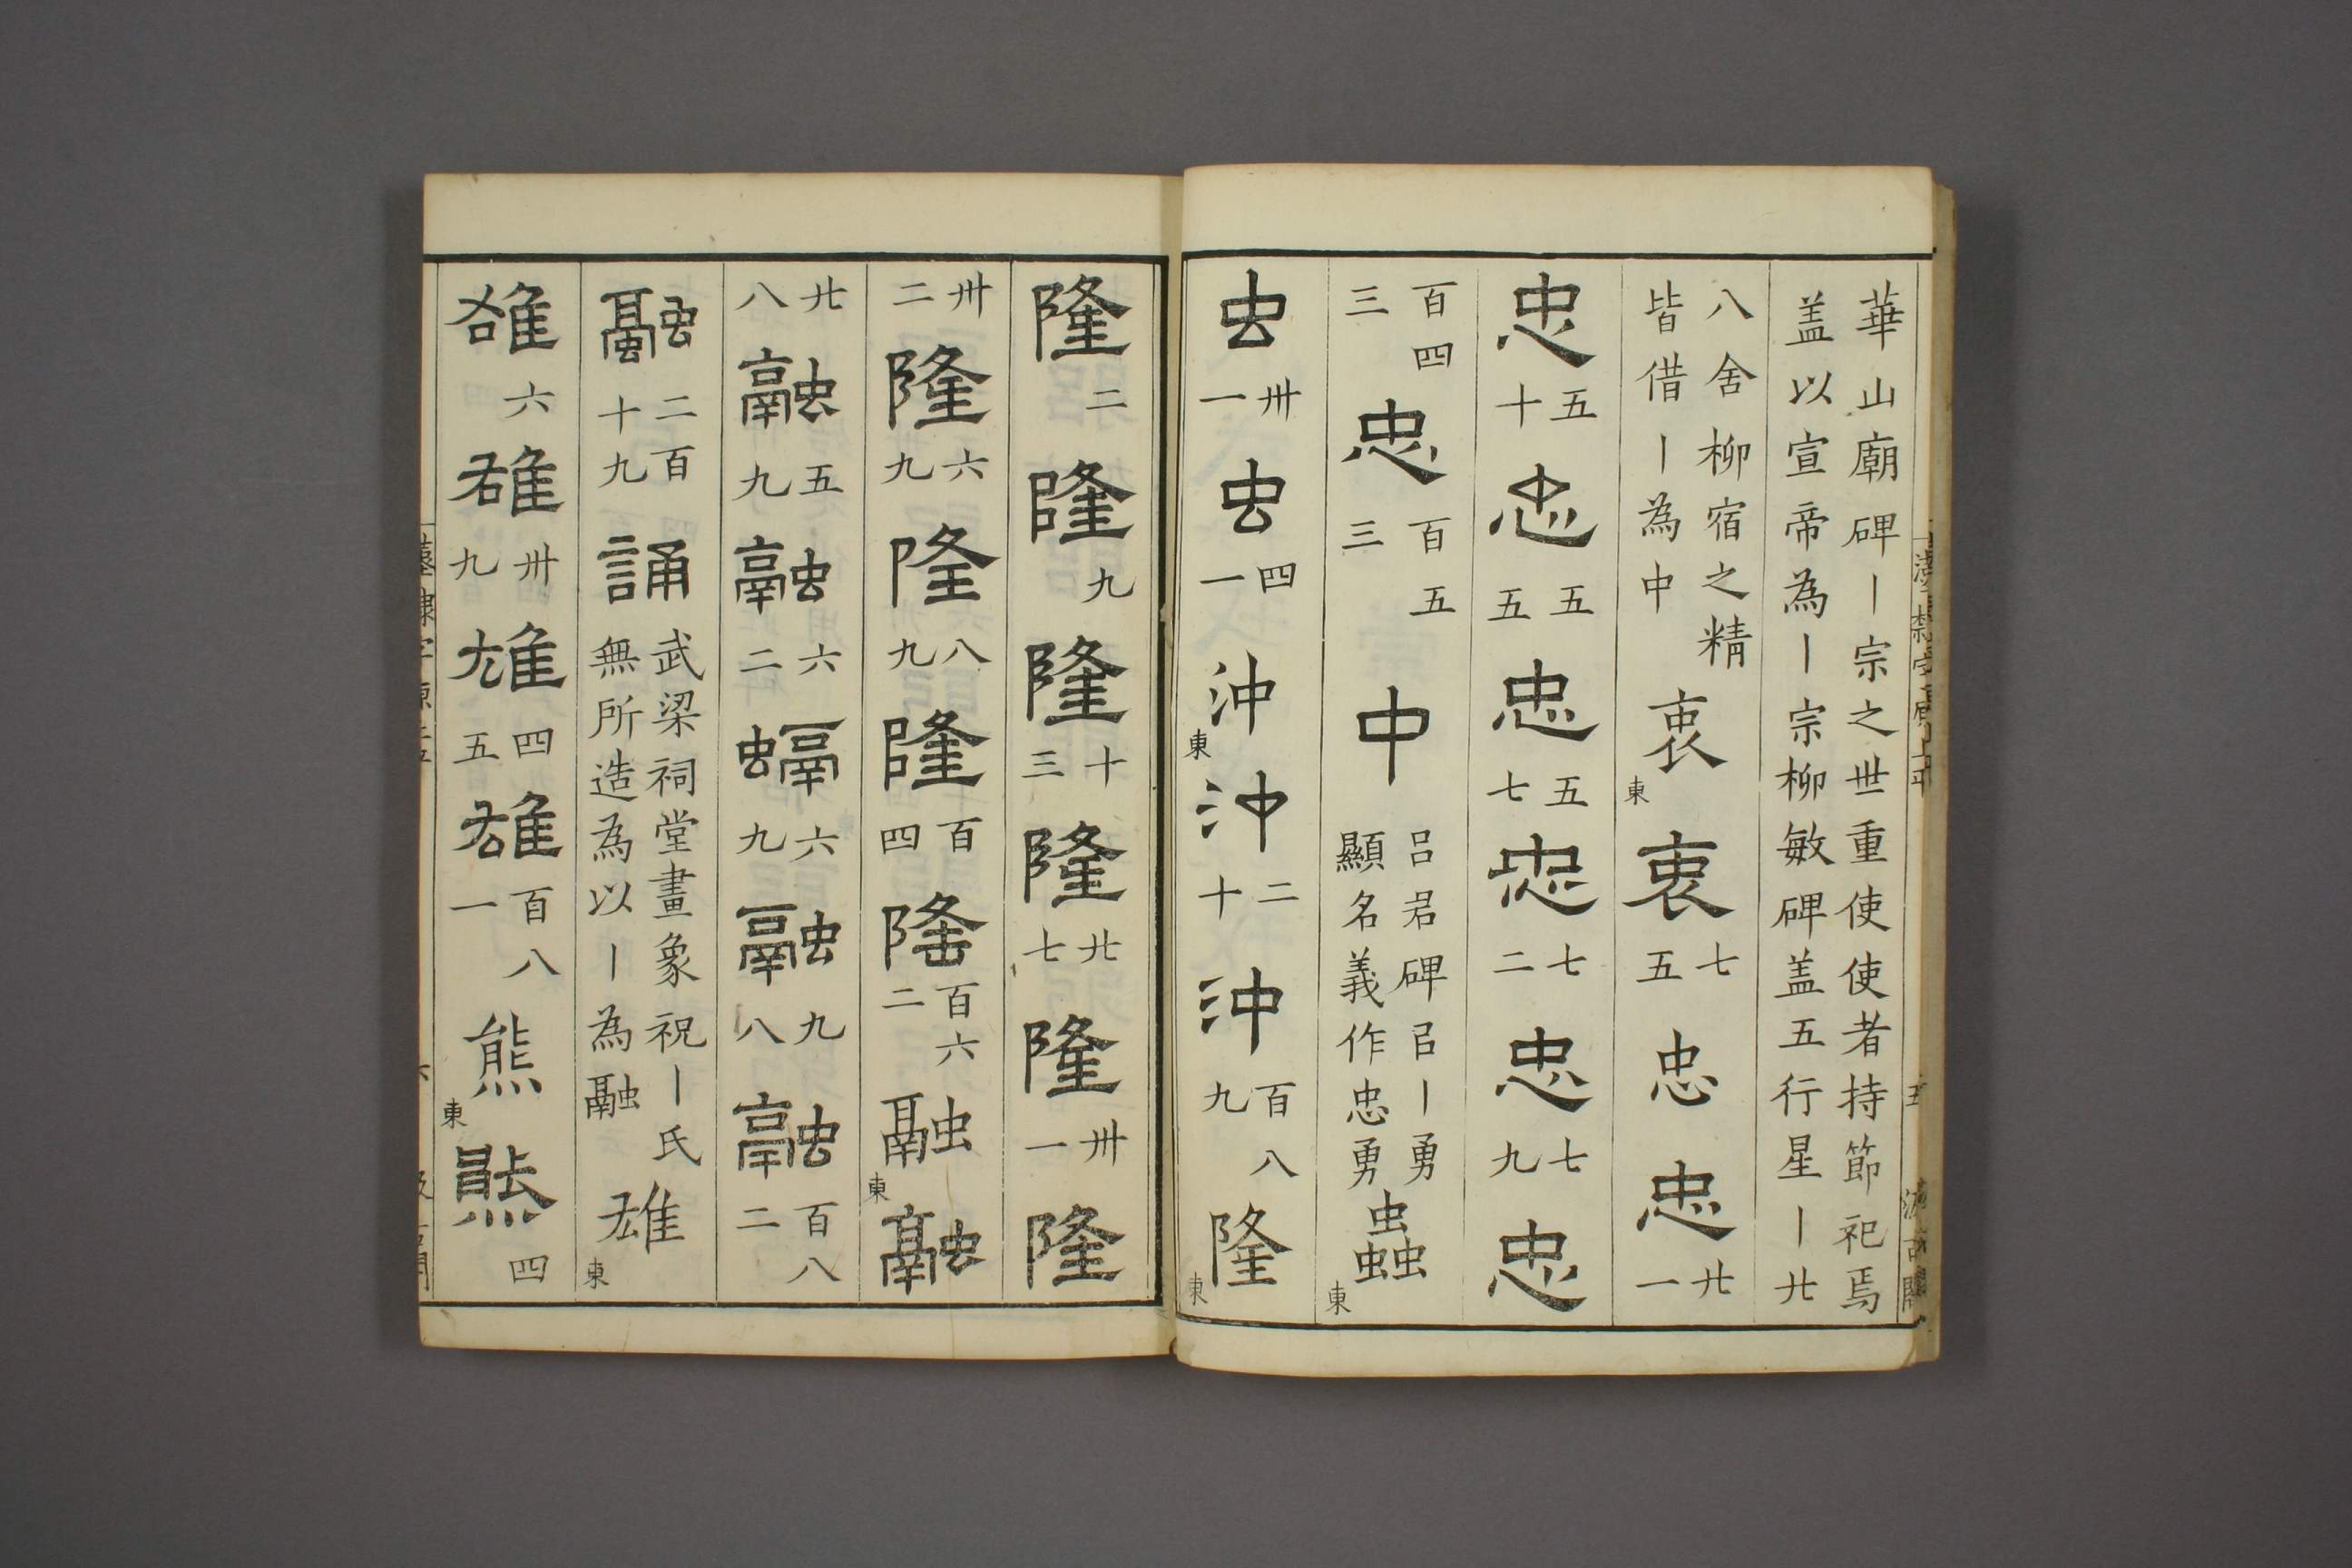 華山廟碑丨宗之世重使使者持節祀焉
盖以宣帝為丨宗柳敏碑盖五行星丨廿
八舍柳宿之精
皆借丨為中
衷 東 衷 七五 忠 忠 廿一
忠 五十 忠 五五 忠 五七 忠 七二 忠 七九 忠
百四三 忠 百五三 中
吕君碑㠯丨勇
顯名義作忠勇
蟲 東
虫 卅一 虫 四一 沖 東 沖 二十 沖 百八九 隆 東
隆 二 隆 九 隆 十三 隆 廿七 隆 卅一 隆
卅二 隆 六九 隆 八九 隆 百四 隆 百六二 融 東 融
廿八 融 五九 融 六二 融 六九 融 九八 融 百八二
融 二百十九 誦
武梁祠堂畫象祝丨氏
無所造為以丨為融
雄 東
雄 六 雄 卅九 雄 四五 雄 百八一 熊 東 熊 四